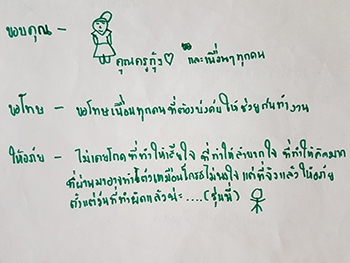 ขอบคุณ -
คุณครูกุ้ง♡ และเพื่อนๆทุกคน
ขอโทษ - ขอโทษเพื่อนทุกคนที่ต้องบังคับให้ช่วยกันทำงาน
ให้อภัย - ไม่เคยโกรธที่ทำให้เสียใจ ที่ทำให้ลำบากใจ ที่ทำให้คิดมาก
ที่ผ่านมาอาจทำตัวเหมือนโกรธไม่พอใจ แต่ที่จริงแล้วให้อภัย
ตั้งแต่วันที่ทำผิดแล้วน่ะ....(รุ่นพี่)